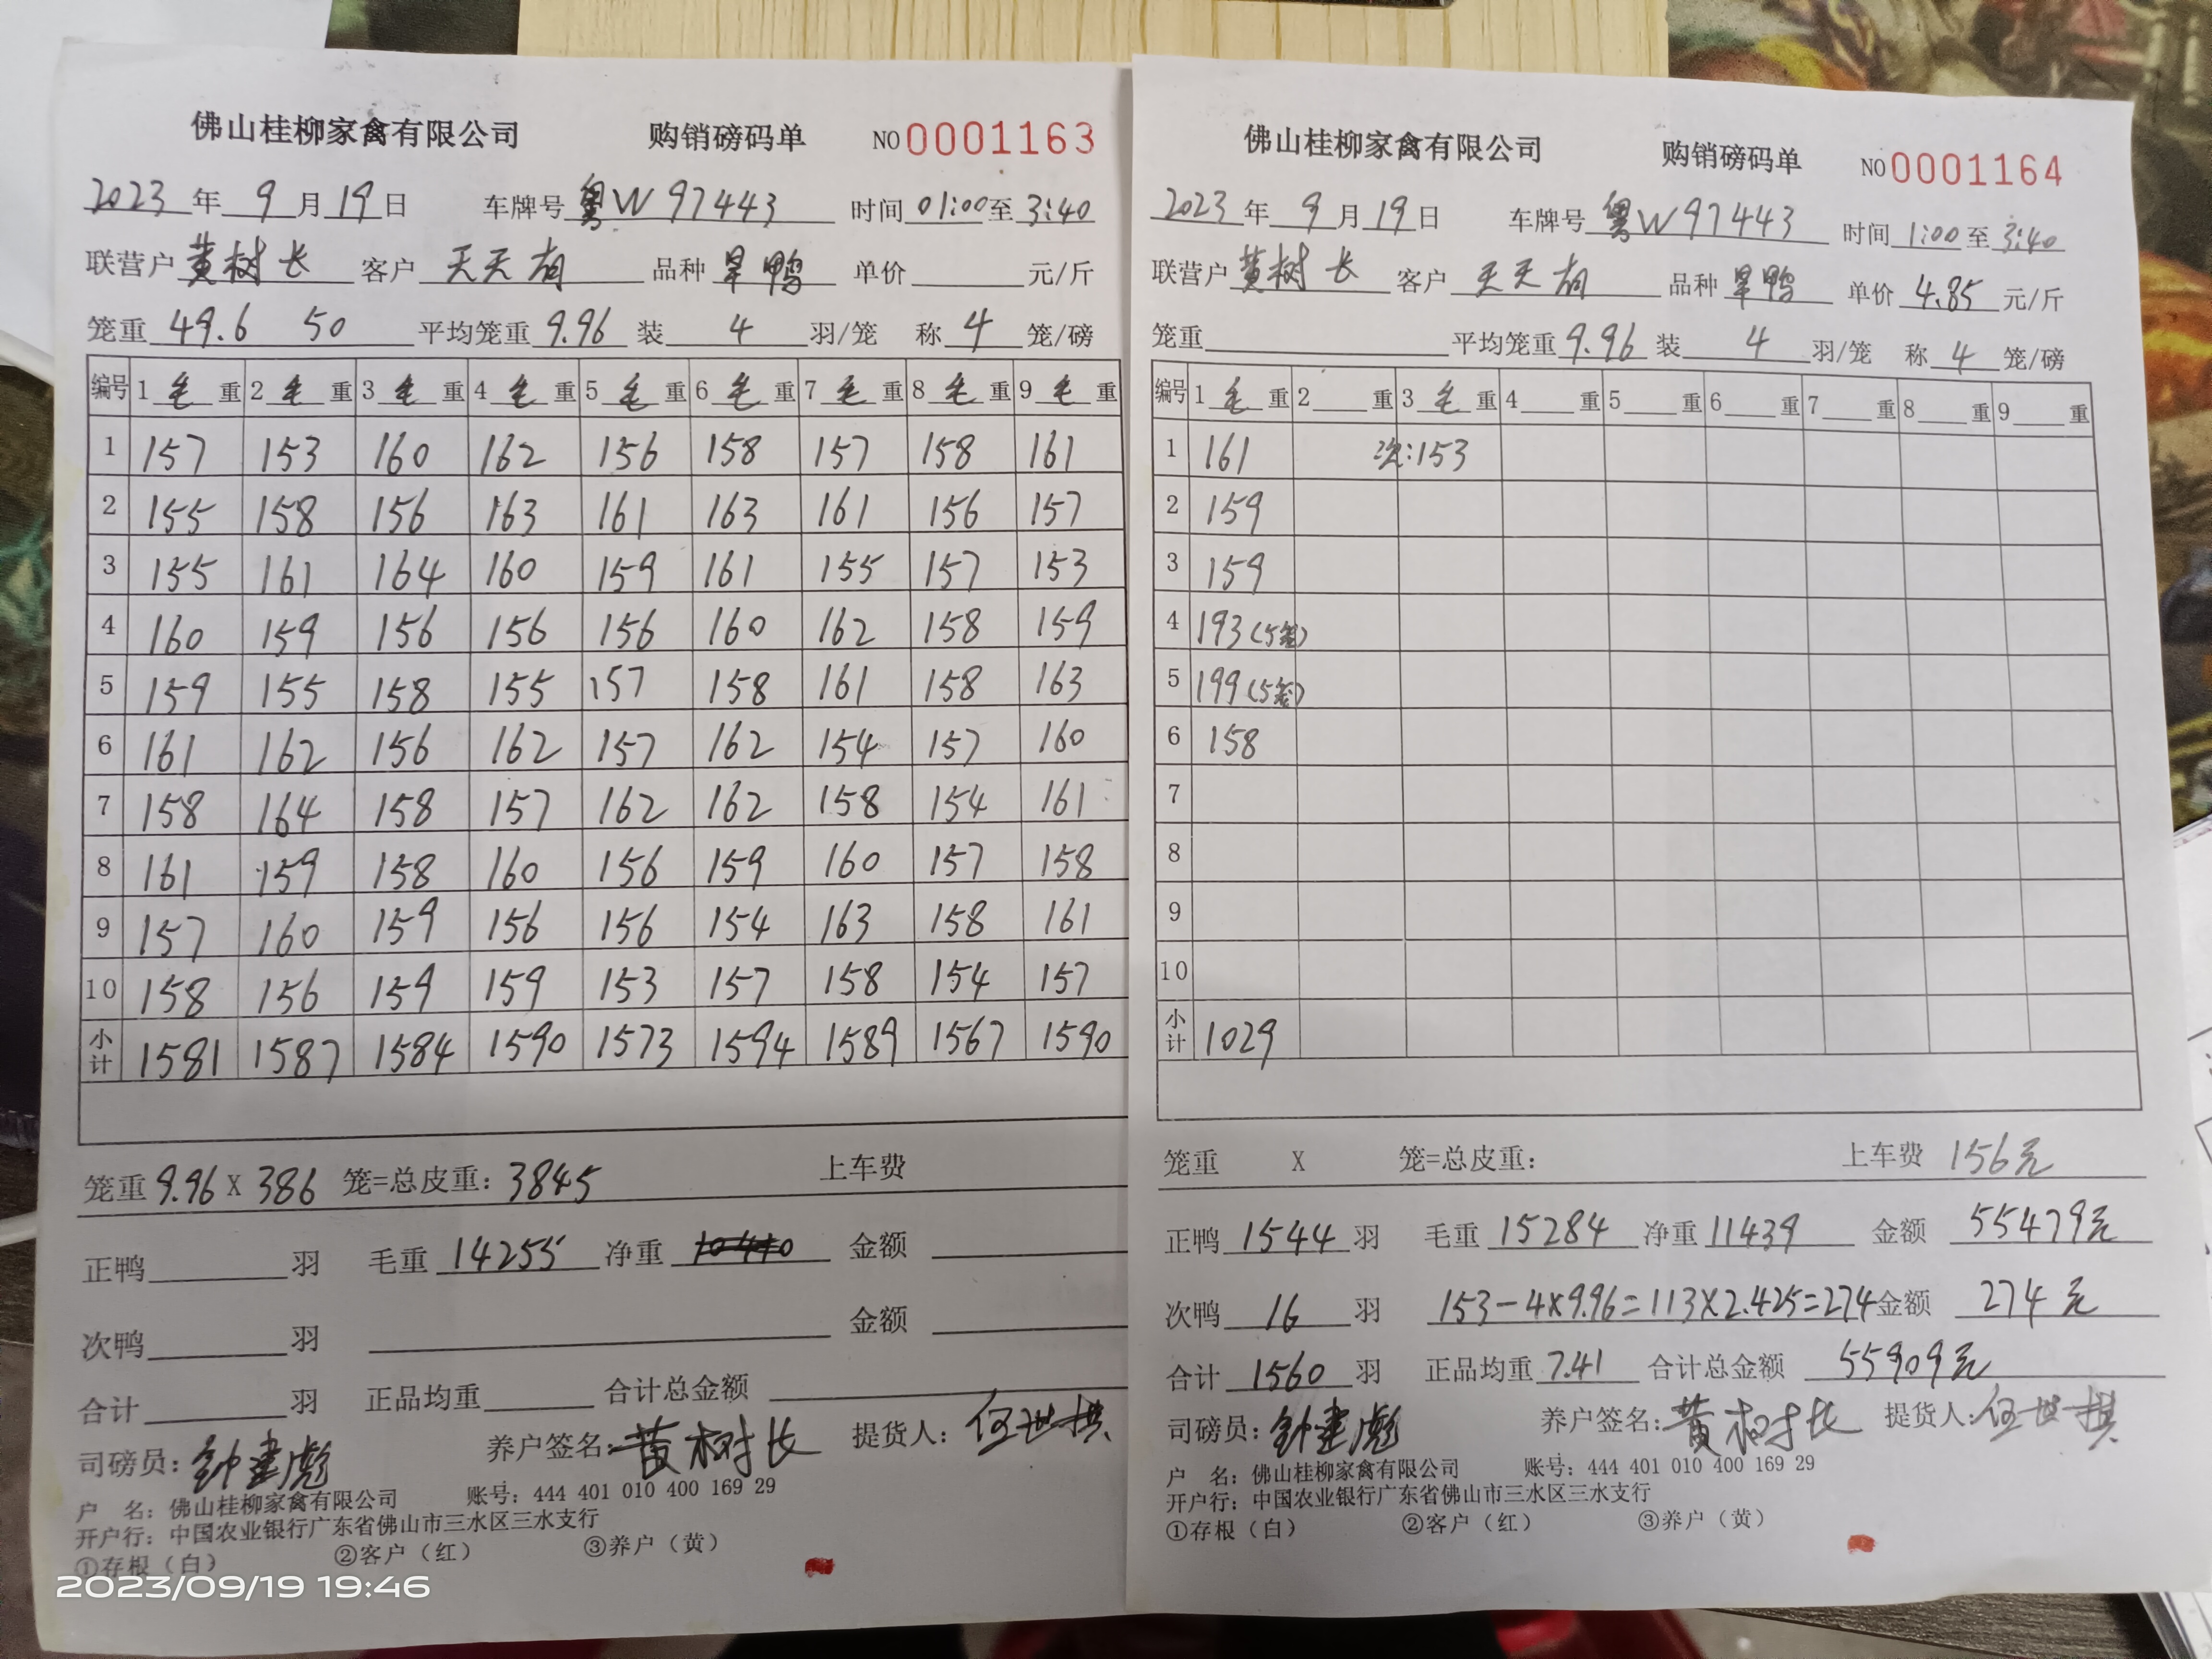 佛山桂柳家禽有限公司 购销磅码单 NO 0001163
2023年 9月19日 车牌号 粤W97443 时间 01:00至 3:40
联营户 黄树长 客户 天天旺 品种 旱鸭 单价 元/斤
笼重 49.6 50 平均笼重 9.96 装 4 羽/笼 称 4 笼/磅
编号 1毛重 2毛重 3毛重 4毛重 5毛重 6毛重 7毛重 8毛重 9毛重
1 157 153 160 162 156 158 157 158 161
2 155 158 156 163 161 163 161 156 157
3 155 161 164 160 159 161 155 157 153
4 160 159 156 156 156 160 162 158 159
5 159 155 158 155 157 158 161 158 163
6 161 162 156 162 157 162 154 157 160
7 158 164 158 157 162 162 158 154 161
8 161 159 158 160 156 159 160 157 158
9 157 160 159 156 156 154 163 158 161
10 158 156 159 159 153 157 158 154 157
小计 1581 1587 1584 1590 1573 1594 1589 1567 1590
笼重 9.96 X 386 笼=总皮重: 3845 上车费
正鸭 羽 毛重 14255 净重 10410 金额
次鸭 羽 金额
合计 羽 正品均重 合计总金额
司磅员: 钟建彪 养户签名: 黄树长 提货人: 何世棋
户 名: 佛山桂柳家禽有限公司 账号: 444 401 010 400 169 29
开户行: 中国农业银行广东省佛山市三水区三水支行
①存根(白) ②客户(红) ③养户(黄)
2023/09/19 19:46
佛山桂柳家禽有限公司 购销磅码单 NO 0001164
2023年 9月19日 车牌号 粤W97443 时间 1:00至 3:40
联营户 黄树长 客户 天天旺 品种 旱鸭 单价 4.85 元/斤
笼重 平均笼重 9.96 装 4 羽/笼 称 4 笼/磅
编号 1毛重 2 重 3毛重 4 重 5 重 6 重 7 重 8 重 9 重
1 161 次:153
2 159
3 159
4 193(5笼)
5 199(5笼)
6 158
7
8
9
10
小计 1029
笼重 X 笼=总皮重: 上车费 156元
正鸭 1544 羽 毛重 15284 净重 11439 金额 55479元
次鸭 16 羽 153-4×9.96=113×2.425=274 金额 274元
合计 1560 羽 正品均重 7.41 合计总金额 55909元
司磅员: 钟建彪 养户签名: 黄树长 提货人: 何世棋
户 名: 佛山桂柳家禽有限公司 账号: 444 401 010 400 169 29
开户行: 中国农业银行广东省佛山市三水区三水支行
①存根(白) ②客户(红) ③养户(黄)